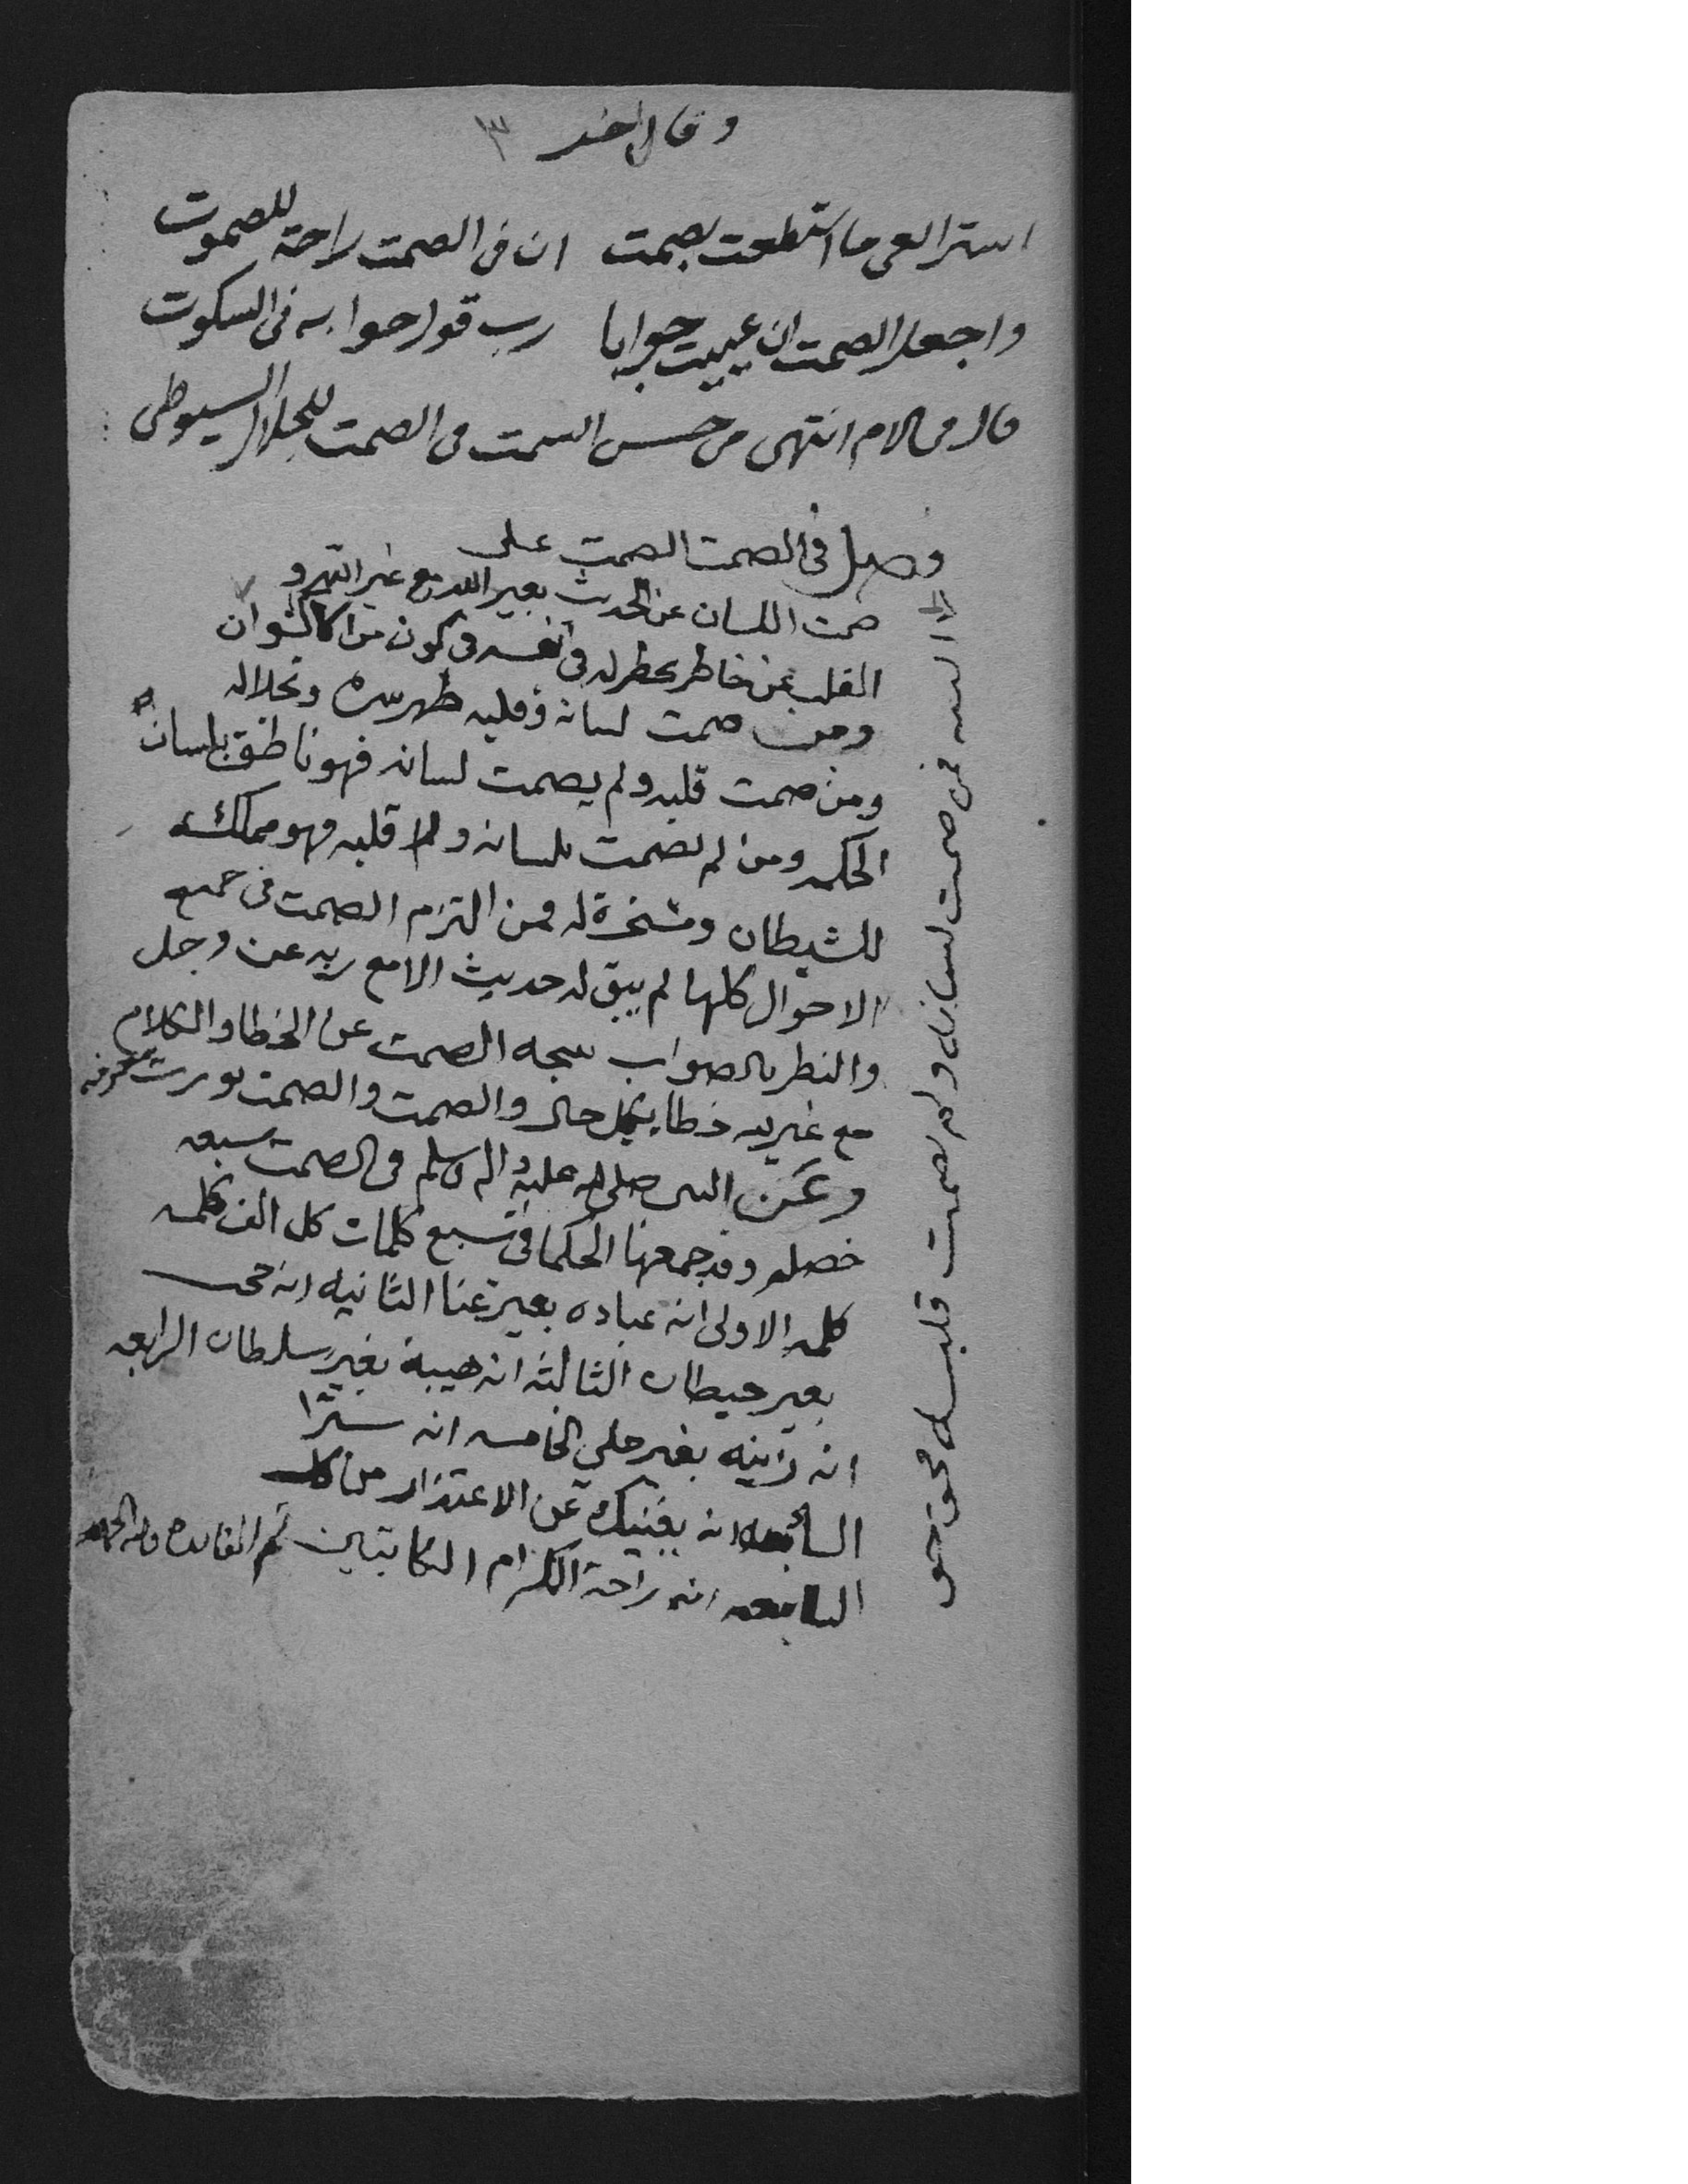 وقال اخر ٣
استر العي ما استطعت بصمت ان في الصمت راحة للصموت
واجعل الصمت ان عييت جوابا رب قول جوابه في السكوت
قال من الام انتهى من حسن السمت في الصمت للجلال السيوطى
وصل في الصمت الصمت على
صمت اللسان عن الحديث بغير الله مع غير الله و
القلب عن خاطر يخطر له في نفسه في كون من الاكوان
ومن صمت لسانه وقلبه ظهر سره وتجلاله
ومن صمت قلبه ولم يصمت لسانه فهو ناطق بلسان
الحكمه ومن لم يصمت بلسانه ولا قلبه فهو مملكة
للشيطان ومسخرة له فمن التزم الصمت في جميع
الاحوال كلها لم يبق له حديث الا مع ربه عز وجل
والنطر بالصواب نتيجه الصمت عن الخطا والكلام
مع غير الله خطا بكل حال والصمت والصمت يورث معرفه
وعن النبي صلى الله عليه واله وسلم في الصمت سبعه
خصله وقد جمعها الحكما في سبع كلمات كل الف كلمه
كلمه الاولى انه عباده بغير عنا الثانيه انه حصن
بغير حيطان الثالثه انه هيبة بغير سلطان الرابعه
انه زينه بغير حلي الخامسه انه ستر
السابعه انه يغنيك عن الاعتذار من كل
السابعه انه راحة الكرام الكاتبين تم الفايده ولله الحمد
فمن صمت لسانه ولم يصمت قلبه